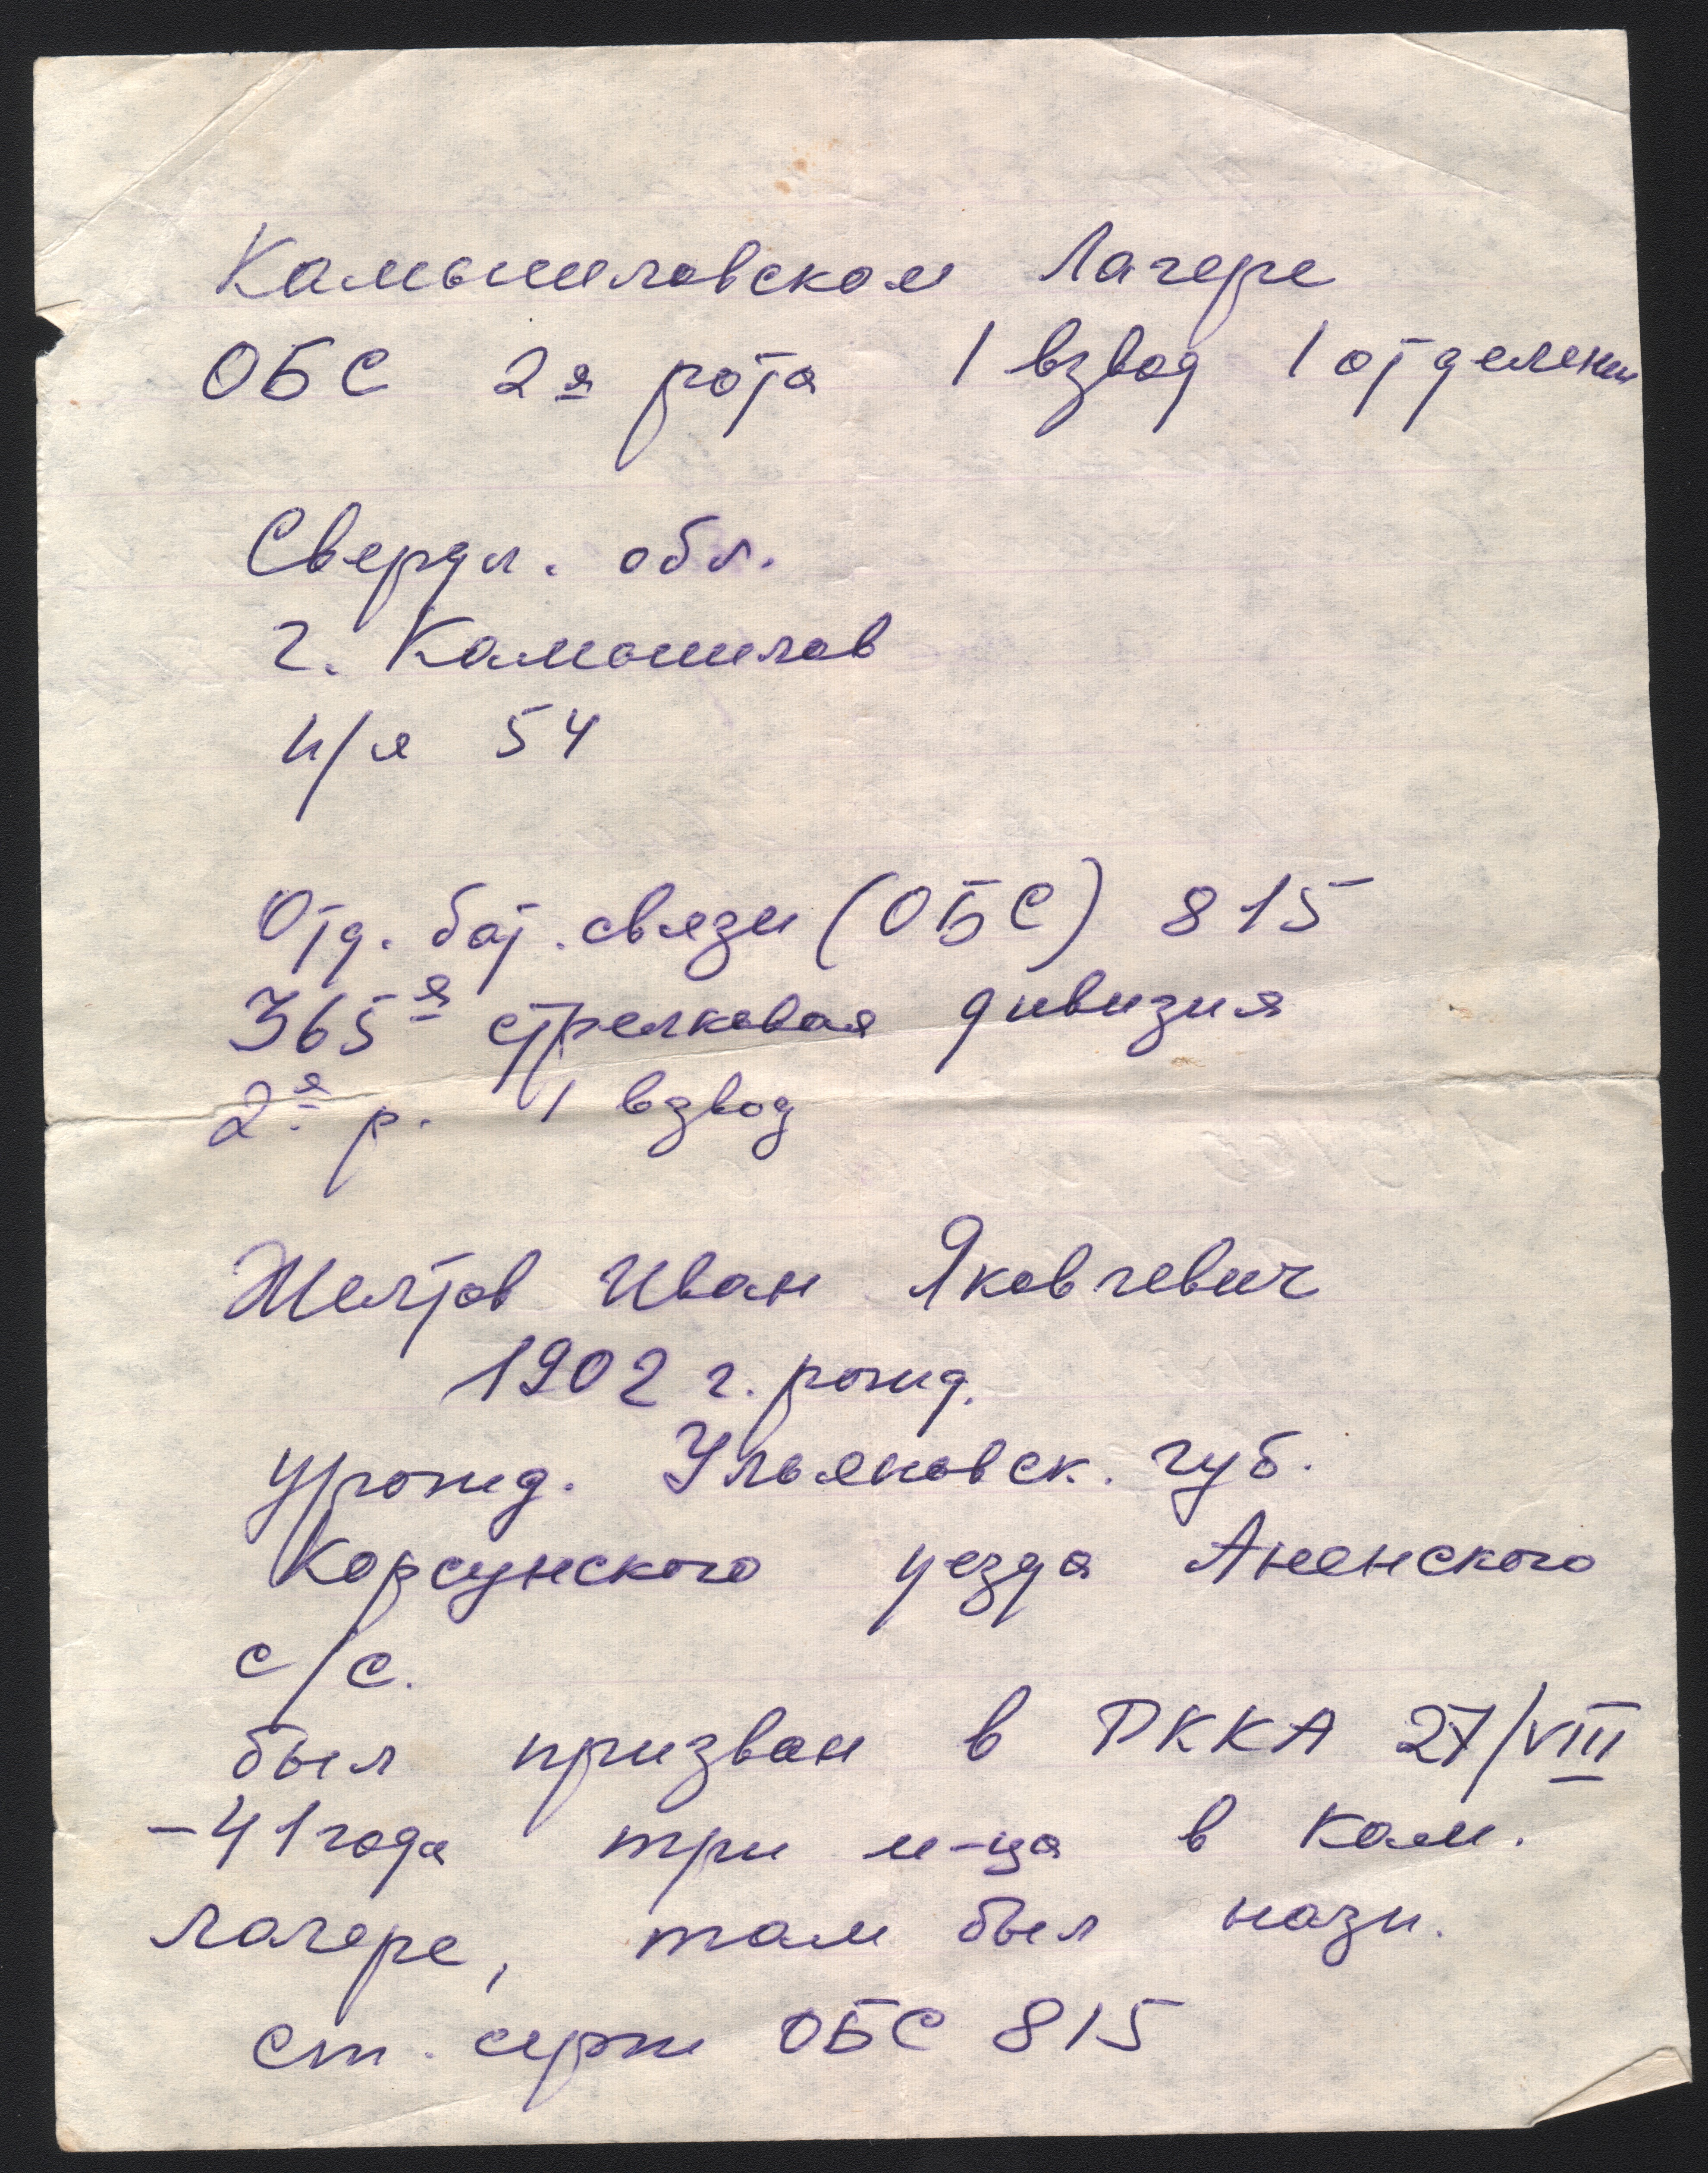 Камышловском Лагере
ОБС 2я рота 1 взвод 1 отделени
Свердл. обл.
г. Камышлов
п/я 54
Отд. бат. связи (ОБС) 815
365я стрелковая дивизия
2я р. 1 взвод
Желтов Иван Яковлевич
1902 г. рожд.
урожд. Ульяновск. губ.
Корсунского уезда Аненского
с/с.
был призван в РККА 27/VIII
-41 года три м-ца в Кам.
лагере, там был назн.
ст. серж ОБС 815